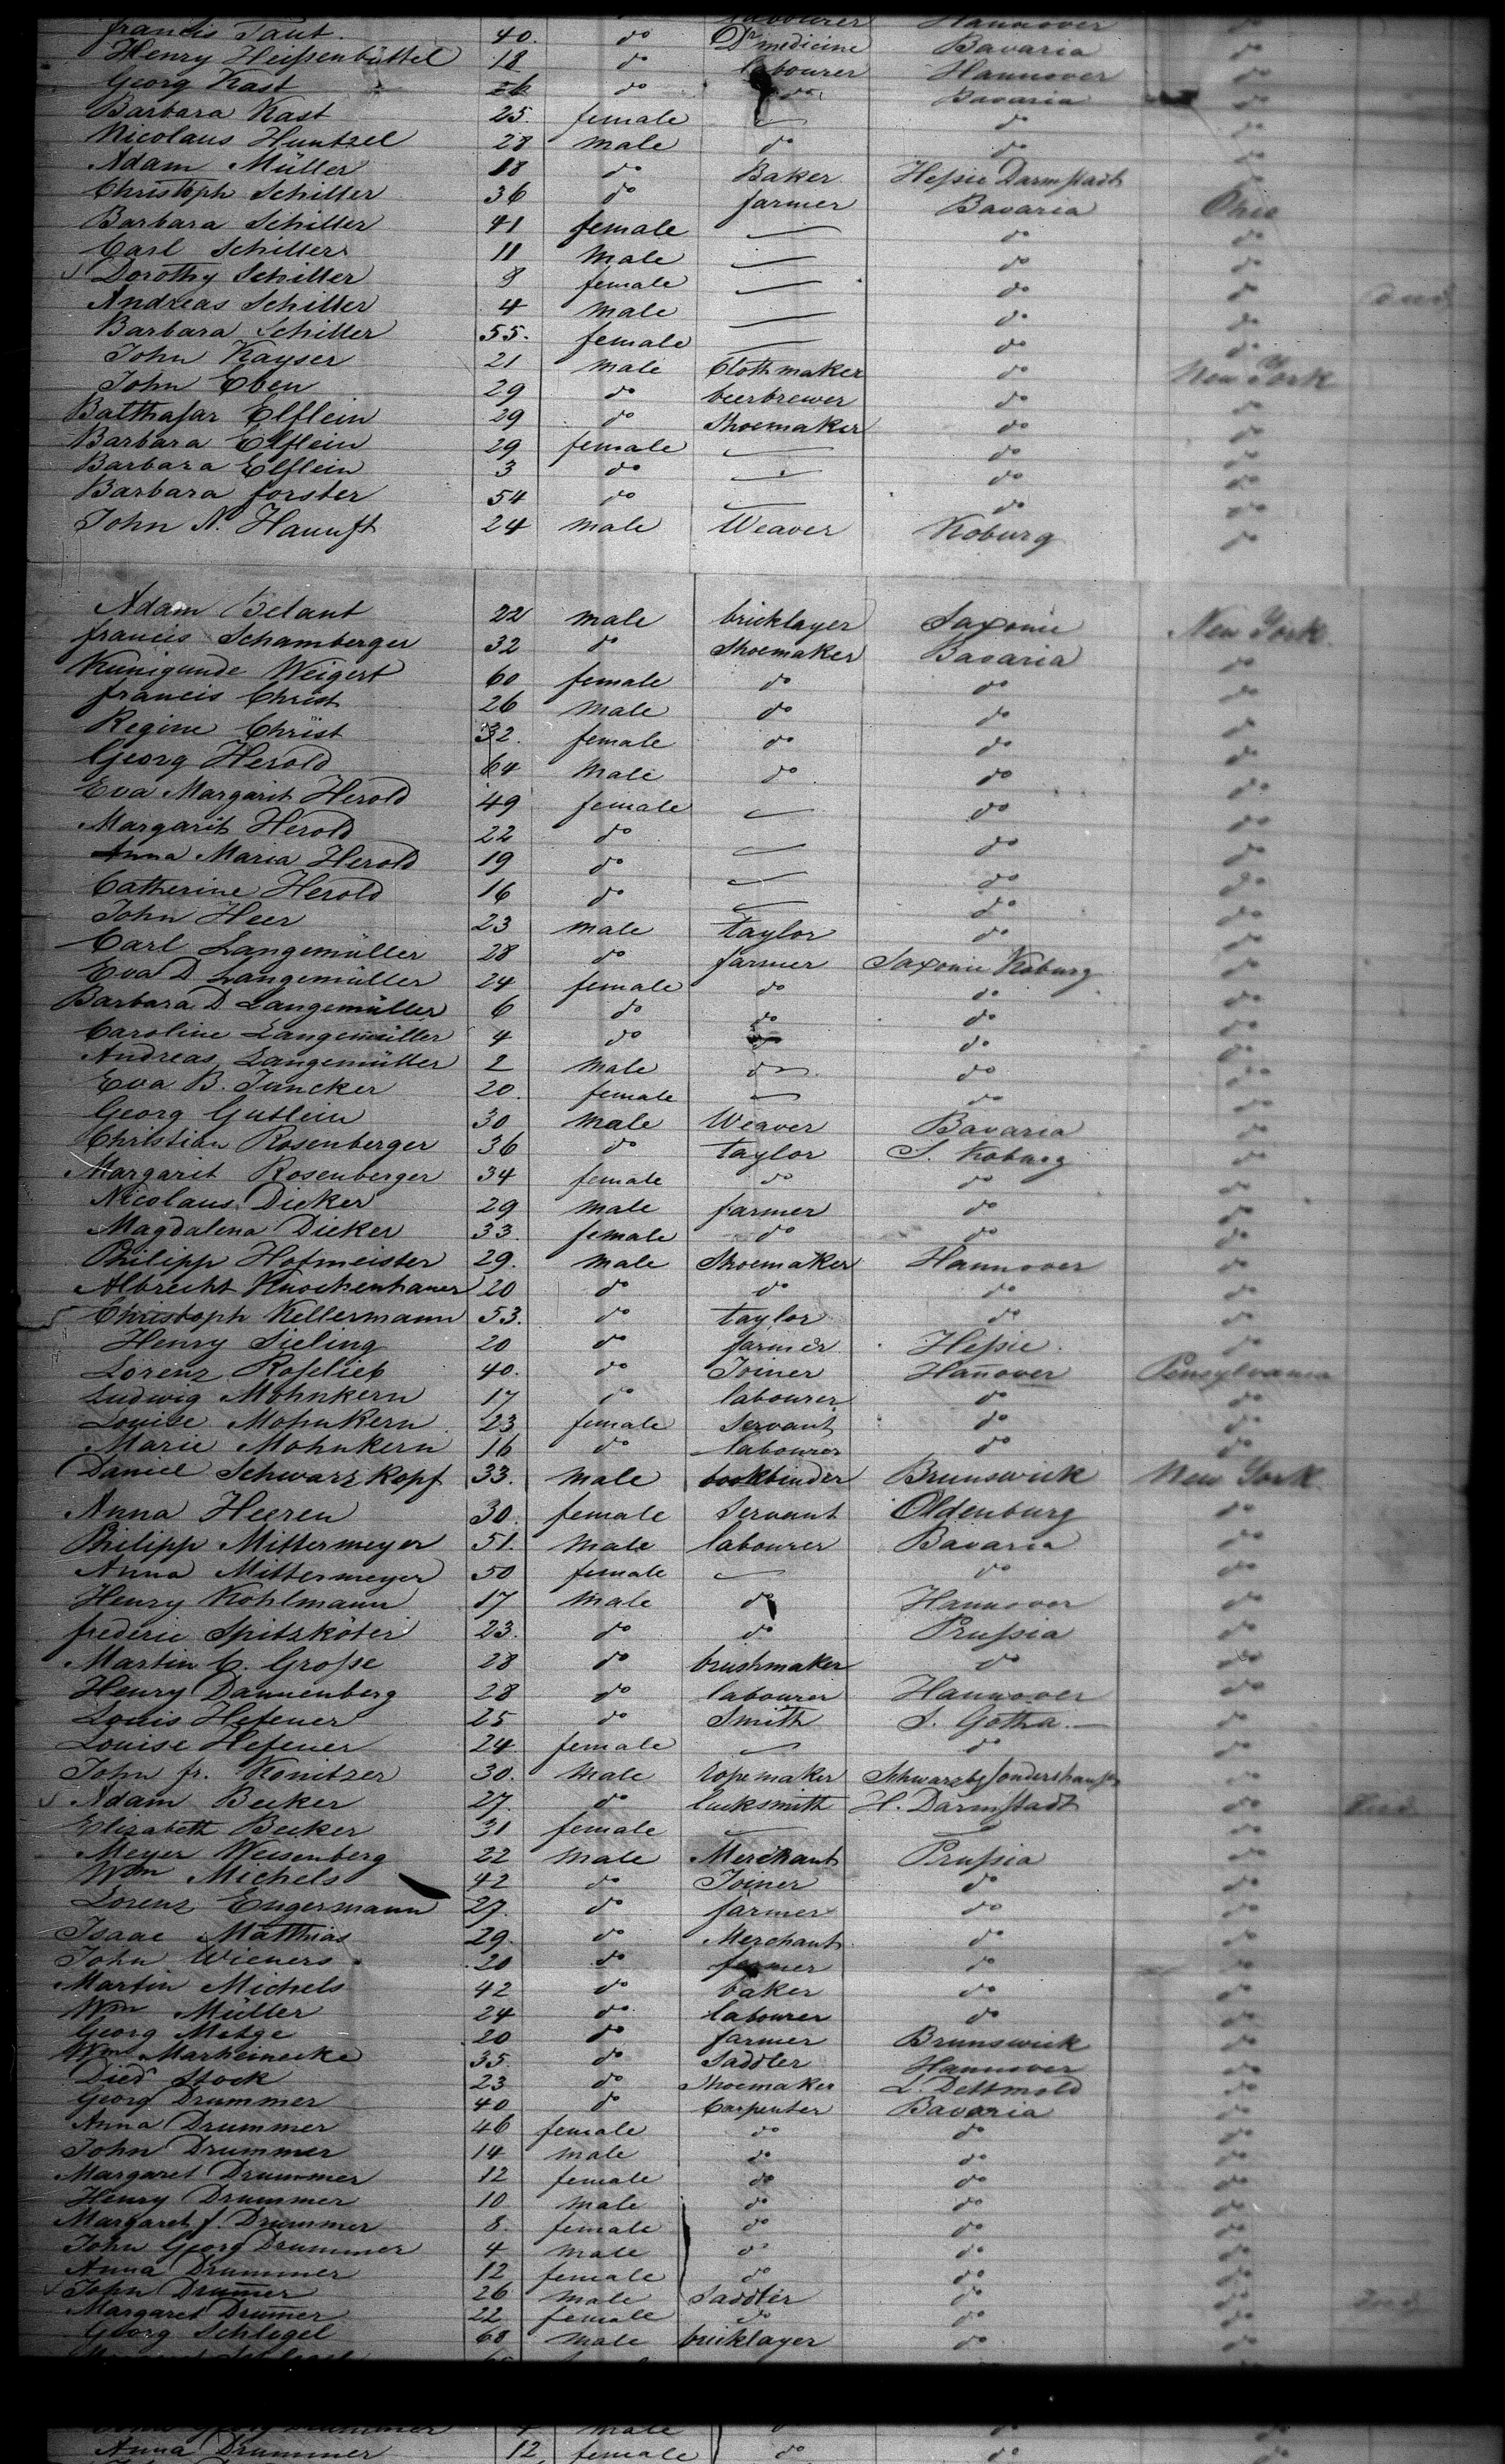 labourer Hannover
Francis Taut. 40. do Dr medicine Bavaria do
Henry Heißenbüttel 18 do labourer Hannover do
Georg Kast do do Bavaria do
Barbara Kast 25. female do do
Nicolaus Huntzel 28 male do do do
Adam Müller 18 do Baker Heßie Darmstadt do
Christoph Schiller 36 do farmer Bavaria Ohio
Barbara Schiller 41 female do do
Carl Schiller 11 male do do
Dorothy Schiller 8 female do do
Andreas Schiller 4 male do do
Barbara Schiller 55. female do do
John Kayser 21 male Clothmaker do New York
John Eben 29 do beerbrewer do do
Balthasar Elflein 29 do Shoemaker do do
Barbara Elflein 29 female do do
Barbara Elflein 3 do do do
Barbara Forster 54 do do do
John N. 24 male Weaver Koburg do
Adam 22 male bricklayer Saxonie New York
Francis Schamberger 32 do Shoemaker Bavaria do
Kunigunde Weigert 60 female do do do
Francis Christ 26 male do do do
Regine Christ 32. female do do do
Georg Herold 64 male do do do
Eva Margarit Herold 49 female do do
Margarit Herold 22 do do do
Anna Maria Herold 19 do do do
Catherine Herold 16 do do do
John Heer 23 male taylor do do
Carl Langemüller 28 do farmer Saxonie Koburg do
Eva D Langemüller 24 female do do do
Barbara D Langemüller 6 do do do do
Caroline Langemüller 4 do do do
Andreas Langemüller 2 male do do do
Eva B. Juncker 20. female do do
Georg Gutlein 30 male Weaver Bavaria do
Christian Rosenberger 36 do taylor S. Koburg do
Margarit Rosenberger 34 female do do do
Nicolaus Dicker 29 male farmer do do
Magdalena Dicker 33. female do do do
Philipp Hofmeister 29. male Shoemaker Hannover do
Albrecht Knochenhauer 20 do do do do
Christoph Kellermann 53. do taylor do do
Henry Sieling 20 do farmer Heßie do
Lorenz 40. do Joiner Hañover Pensylvania
Ludwig Mohnkern 17 do labourer do do
Louise Mohnkern 23 female Servant do do
Marie Mohnkern 16 do labourer do do
Daniel Schwarzkopf 33. male bookbinder Brunswick New York
Anna Heeren 30. female Servant Oldenburg do
Philipp Mittermeyer 51. male labourer Bavaria do
Anna Mittermeyer 50 female do do
Henry Kohlmann 17 male do Hannover do
frederic Spitzköter 23. do do Prußia do
Martin C. Große 28 do brushmaker do do
Henry Dannenberg 28 do labourer Hannover do
Louis Hefener 25 do Smith S. Gotha. do
Louise Hefener 24 female do do
John fr. Konitzer 30. male ropemaker Schwarzbg Sondershausen do
Adam Becker 27. do locksmith H. Darmstadt do
Elizabeth Becker 31 female do
Meyer Weisenberg 22 male Merchant Prußia do
Wm Michels 42 do Joiner do do
Lorenz Engermann 27. do farmer do do
Isaac Matthias 29. do Merchant do do
John Wieners 20 do farmer do do
Martin Michels 42 do baker do do
Wm Müller 24 do labourer do do
Georg Metge 20 do farmer Brunswick do
Wm Marheinecke 35. do Saddler Hannover do
Died Stock 23 do Shoemaker L. Dettmold do
Georg Drummer 40 do Carpenter Bavaria do
Anna Drummer 46 female do do do
John Drummer 14 male do do do
Margaret Drummer 12 female do do do
Henry Drummer 10 male do do do
Margareth f. Drummer 8. female do do do
John Georg Drummer 4 male do do do
Anna Drummer 12 female do do do
John Drum̄er 26 male Saddler do do
Margaret Drum̄er 22 female do do do
Georg Schlegel 68 male bricklayer do do
Drummer 4 male do do do
Anna Drummer 12 female do do do